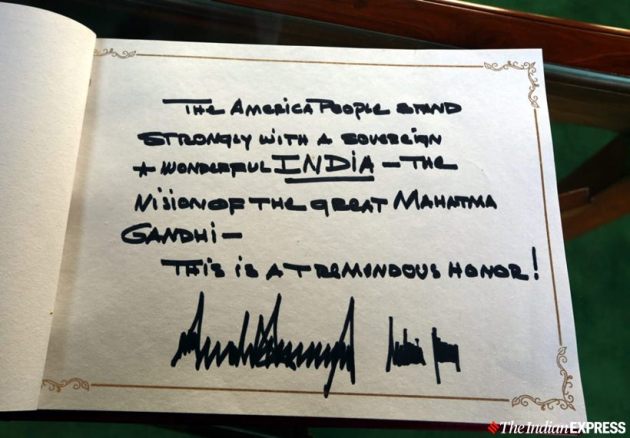 The America People stand
strongly with a sovereign
+ wonderful INDIA – the
vision of the great Mahatma
Gandhi –
This is a tremendous honor!
The Indian EXPRESS